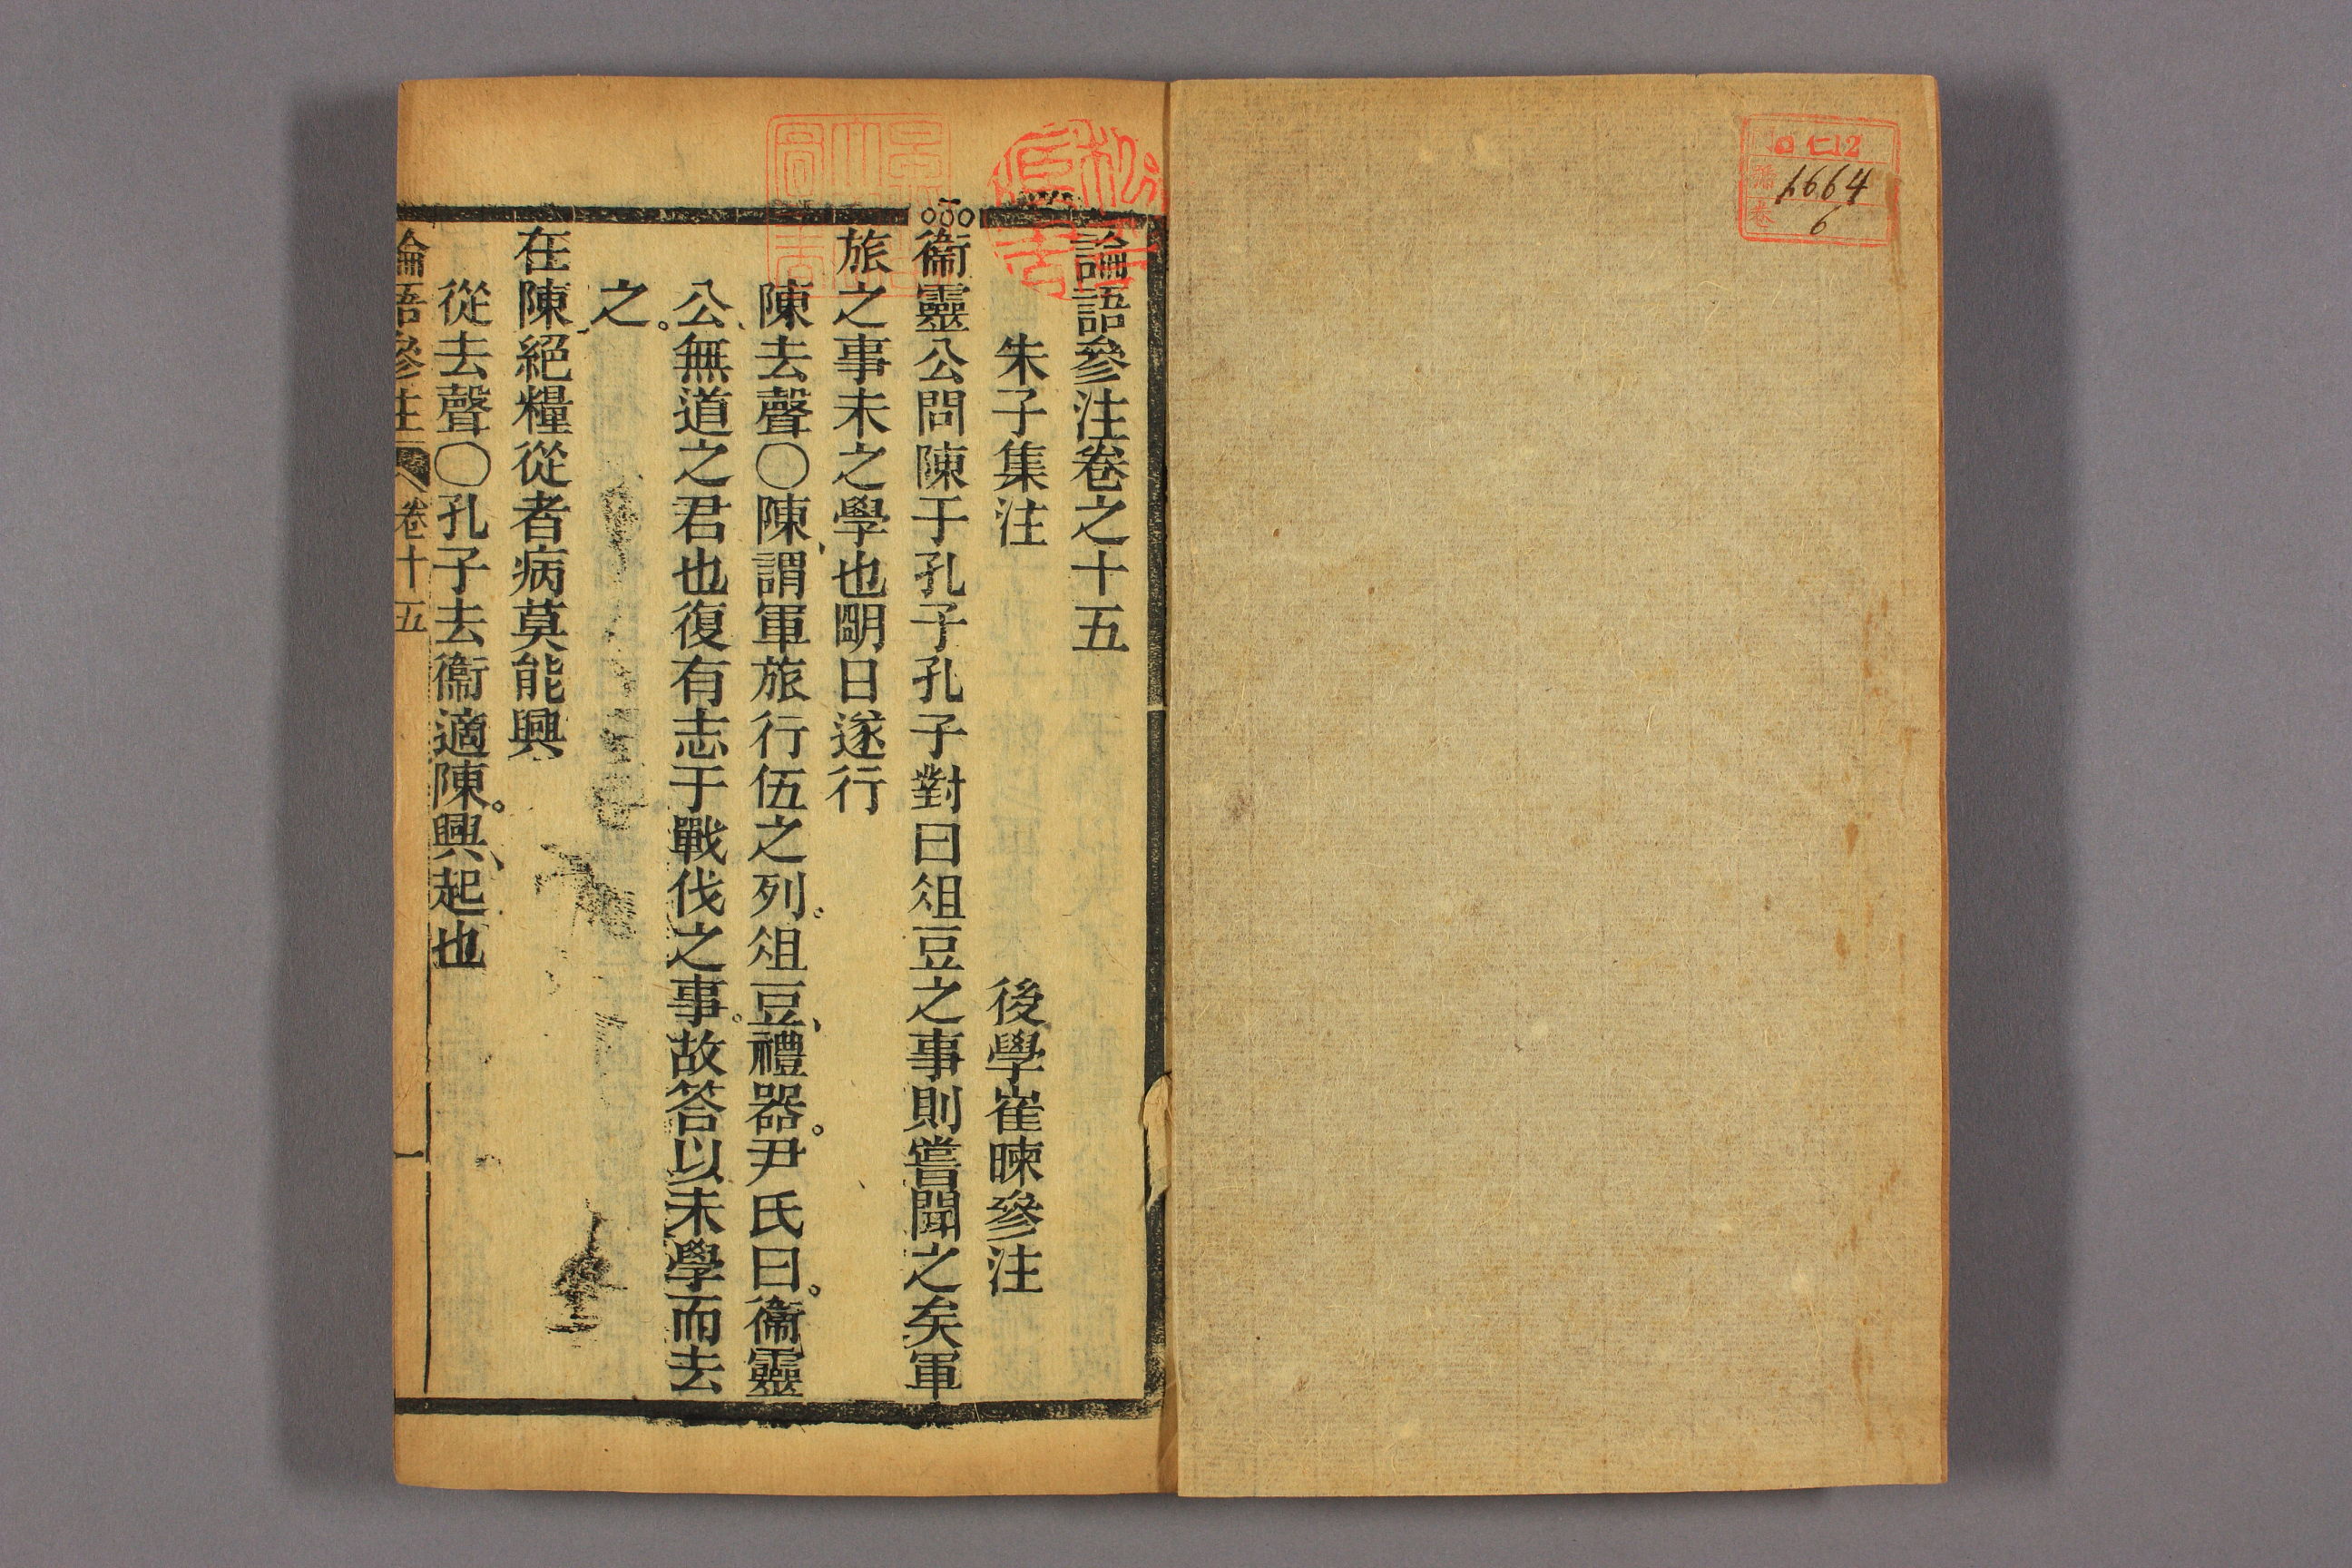 論語參注卷之十五
朱子集注 後學崔暕參注
衞靈公問陳于孔子孔子對曰俎豆之事則嘗聞之矣軍
旅之事未之學也明日遂行
陳去聲〇陳、謂軍旅行伍之列。俎豆、禮器。尹氏曰。衞靈
公、無道之君也復有志于戰伐之事。故答以未學而去
之。
在陳絕糧從者病莫能興
從去聲〇孔子去衞適陳。興、起也
論語參注 卷十五 一
口仁12
1664
6